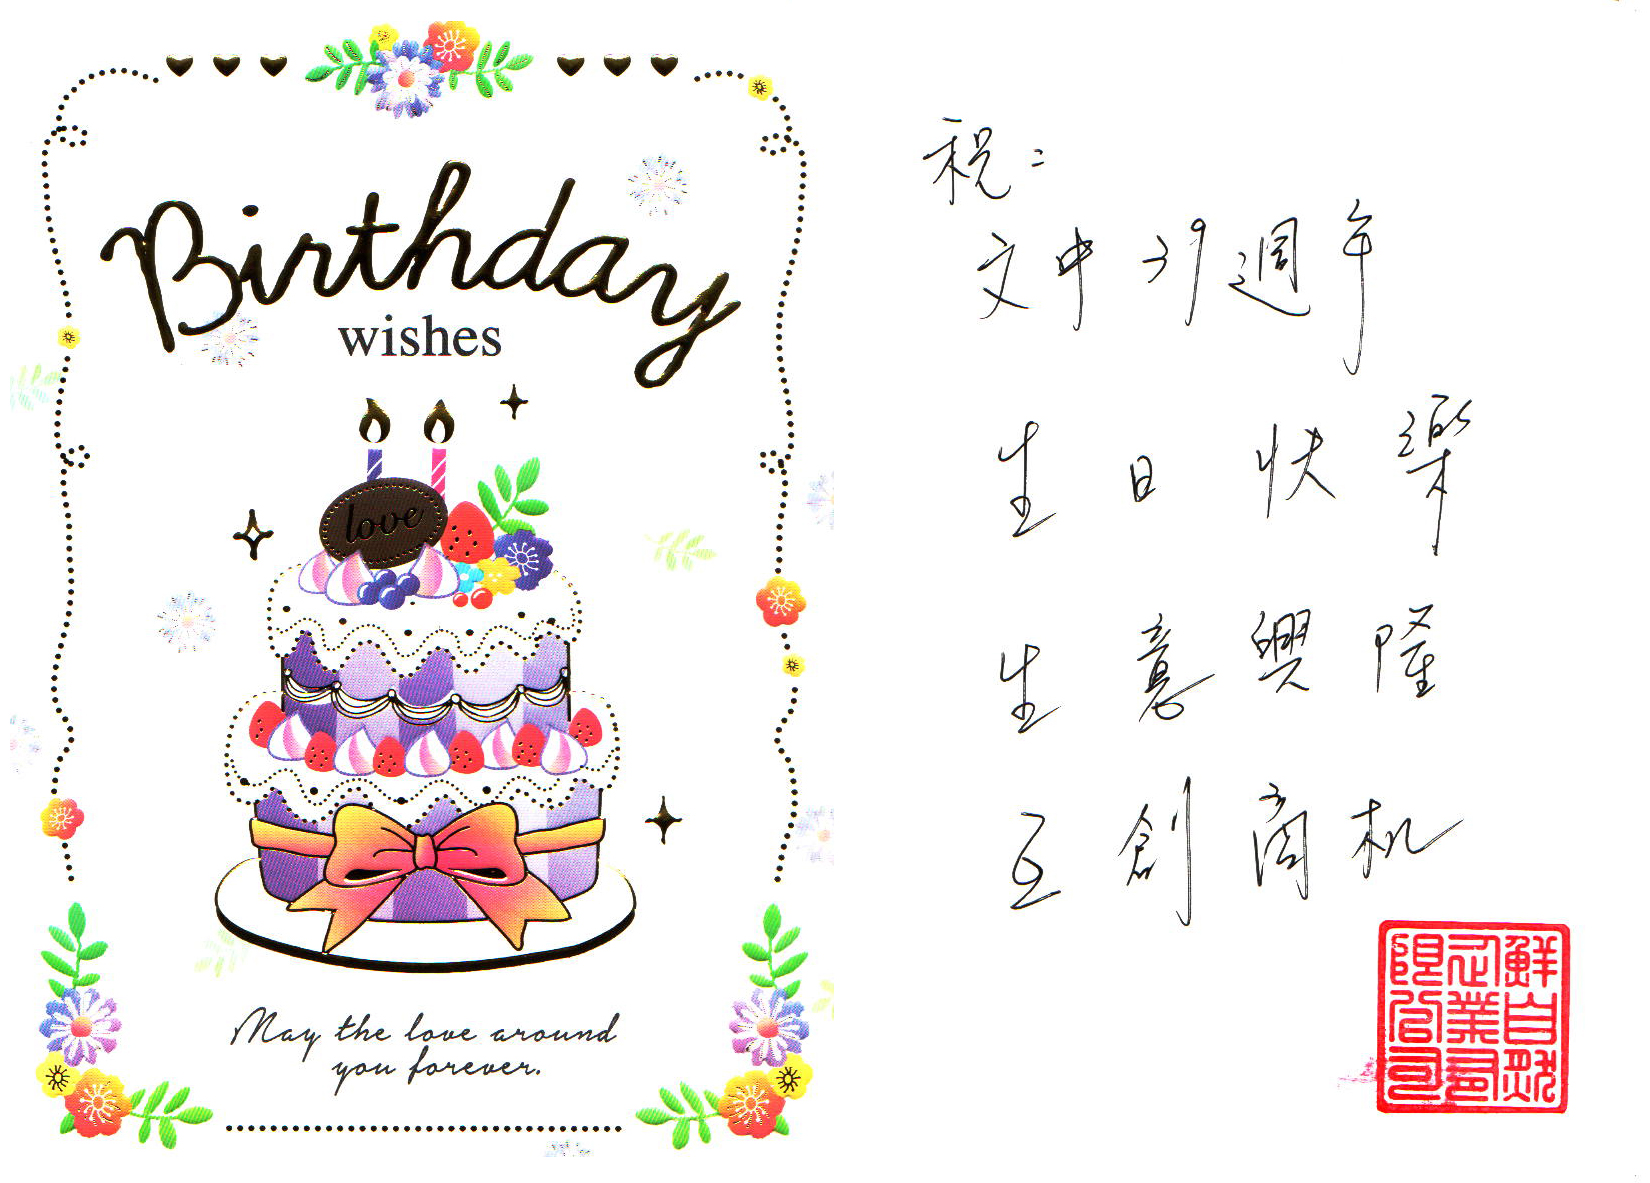 Birthday
wishes
love
May the love around
you forever.
祝：
文中39週年
生日快樂
生意興隆
互創商机
鮮自然
企業有
限公司